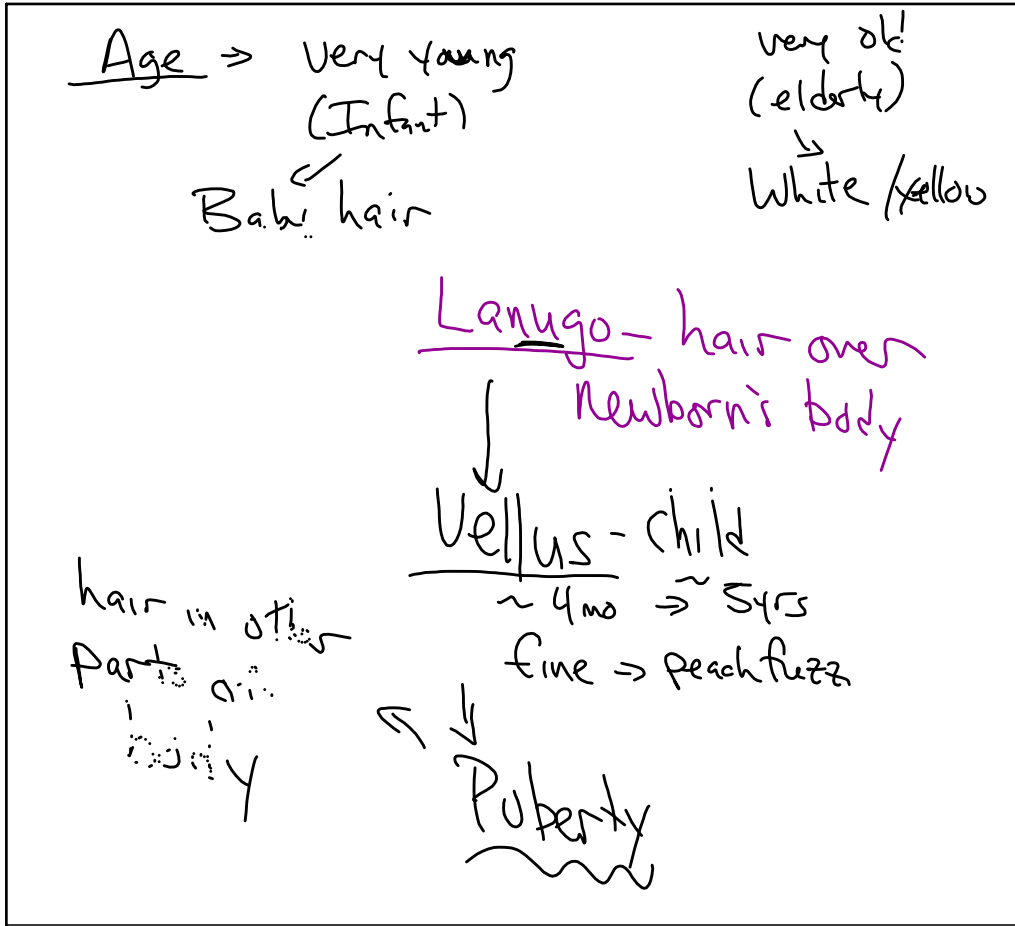 Age → very young
(Infant)
Baby hair
very old
(elderly)
White/yellow
Lanugo - hair over
newborn's body
Vellus - child
~ 4mo → ~ 5yrs
fine ⇒ peachfuzz
Puberty
hair in other
parts on
body